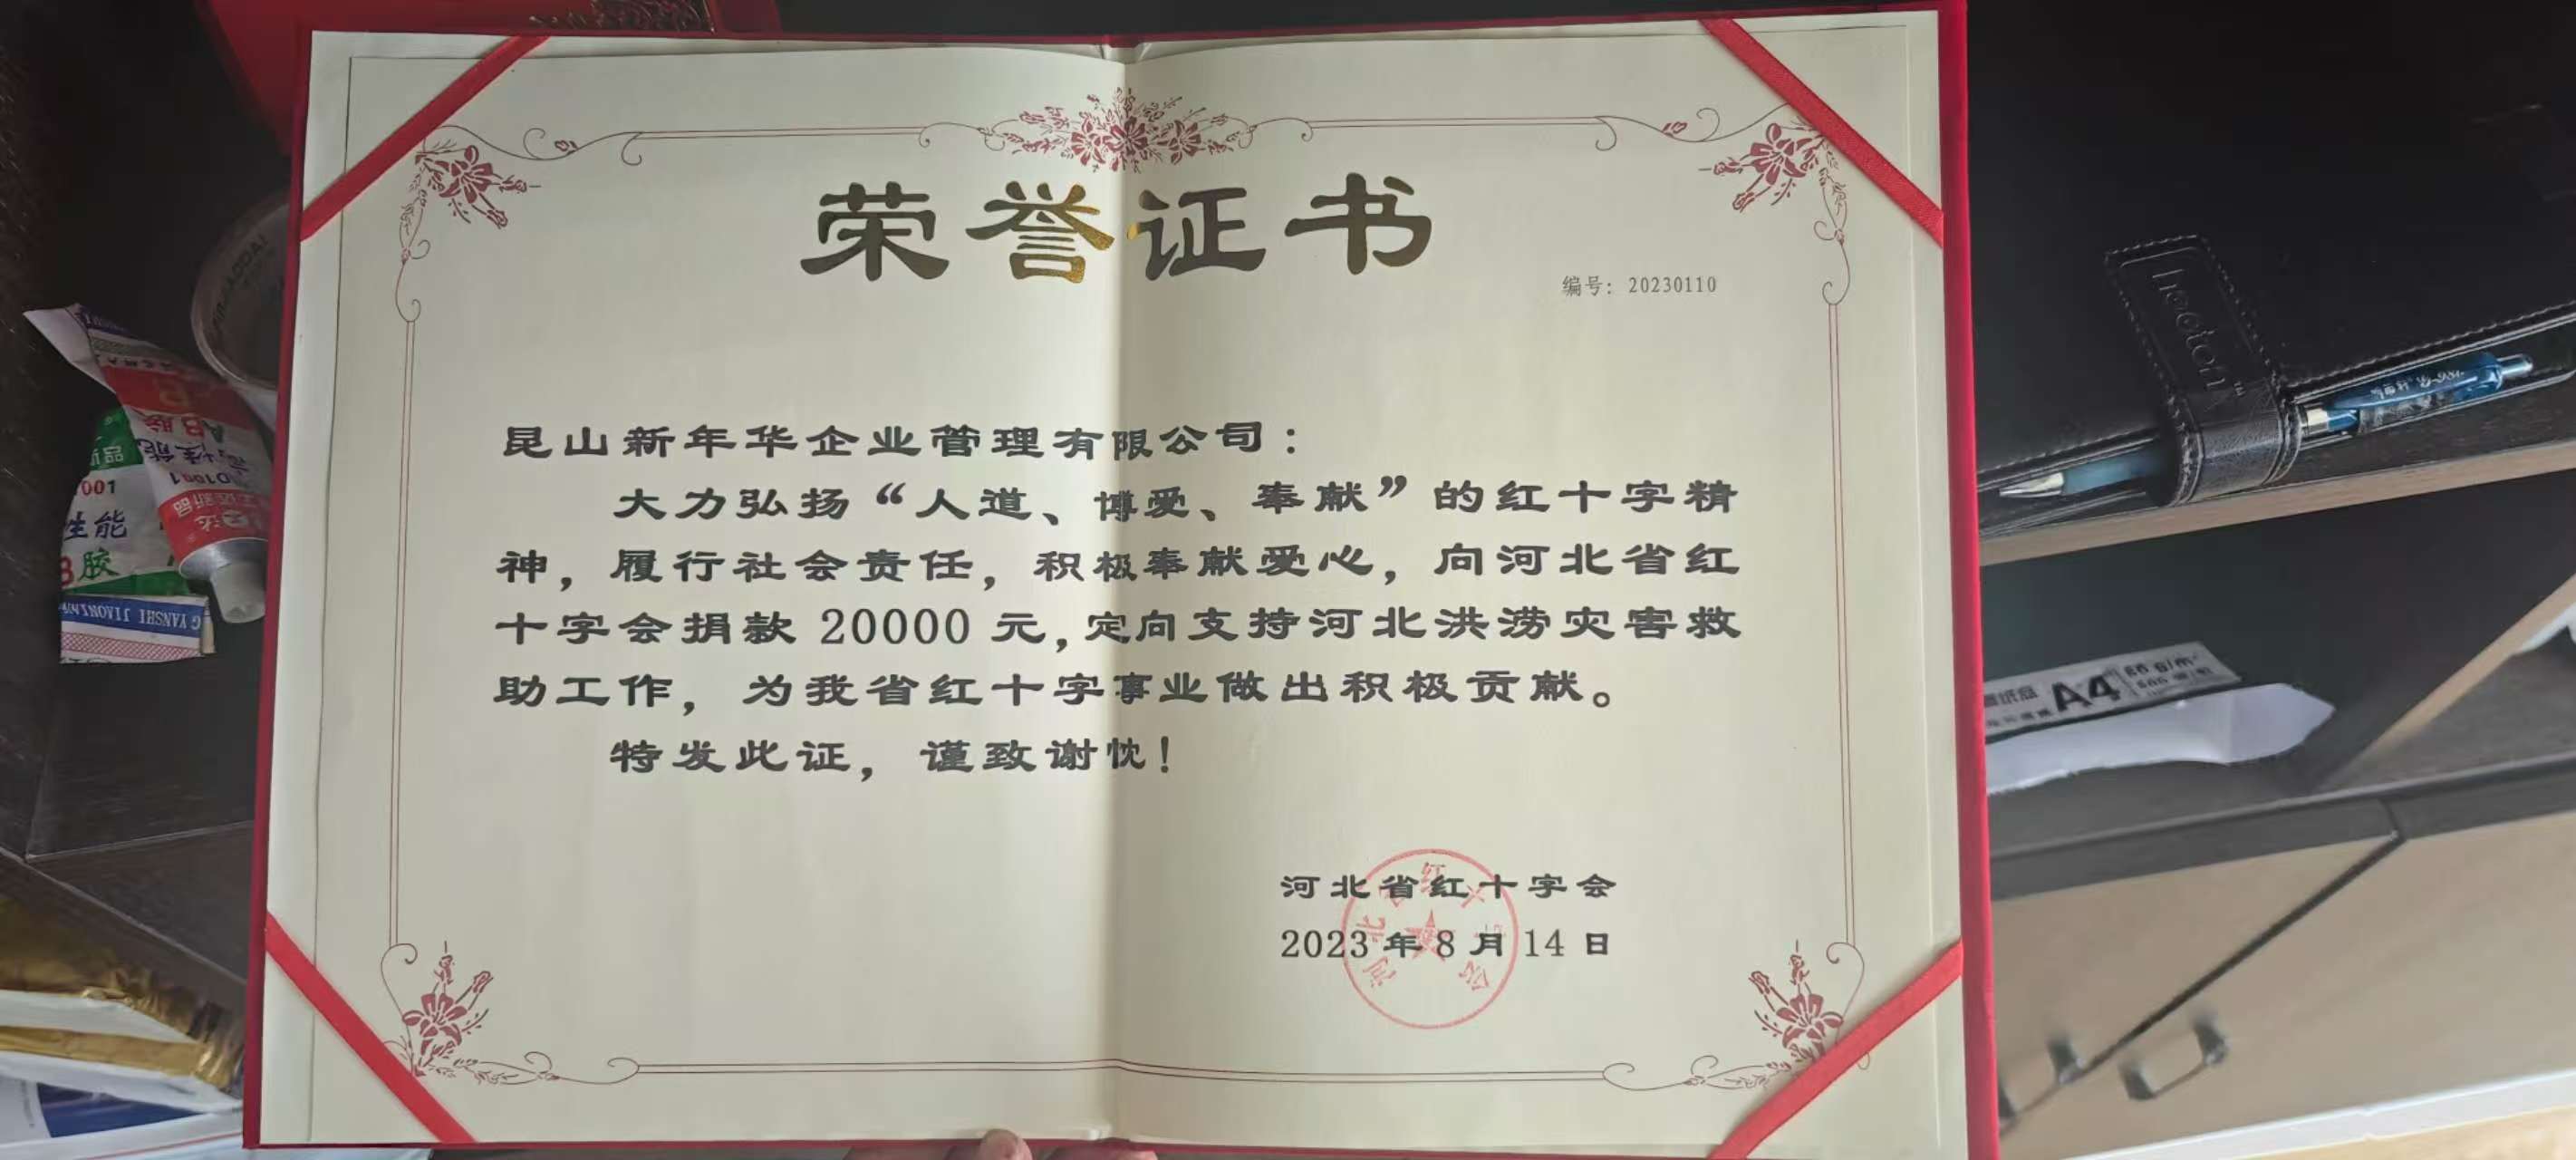 荣誉证书
编号：20230110
昆山新年华企业管理有限公司：
大力弘扬“人道、博爱、奉献”的红十字精
神，履行社会责任，积极奉献爱心，向河北省红
十字会捐款 20000 元，定向支持河北洪涝灾害救
助工作，为我省红十字事业做出积极贡献。
特发此证，谨致谢忱！
河北省红十字会
2023 年 8 月 14 日
河北省红十字会
AB胶
001
性能
B胶
G YANSHI JIAONENG
A4